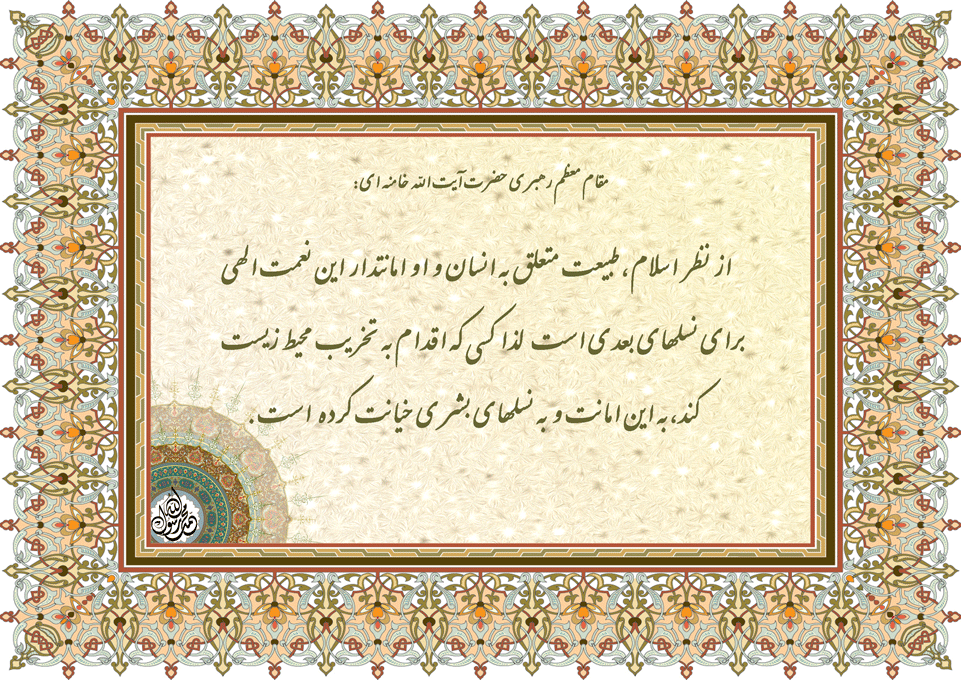 مقام معظم رهبری حضرت آیت الله خامنه ای:
از نظر اسلام، طبیعت متعلق به انسان و او امانتدار این نعمت الهی
برای نسلهای بعدی است لذا کسی که اقدام به تخریب محیط زیست
کند، به این امانت و به نسلهای بشری خیانت کرده است.
محمد رسول الله